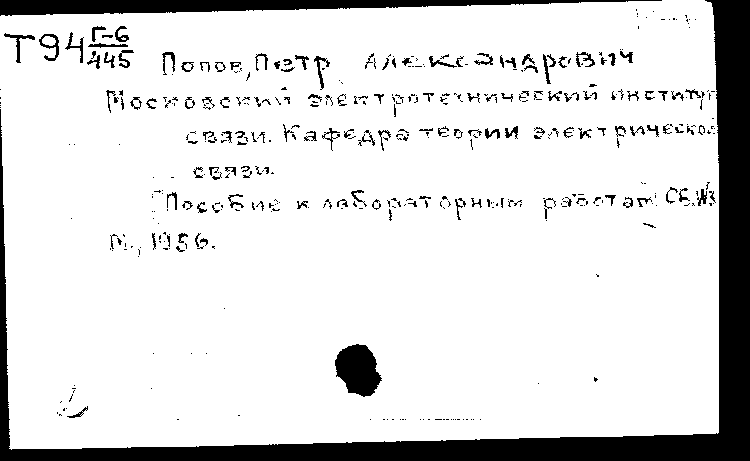 Т94 Г-6/445 Попов, Петр Александрович
Московский электротехнический институт
связи. Кафедра теории электрической
связи.
Пособие к лабораторным работам Сб. №3
М., 1956.